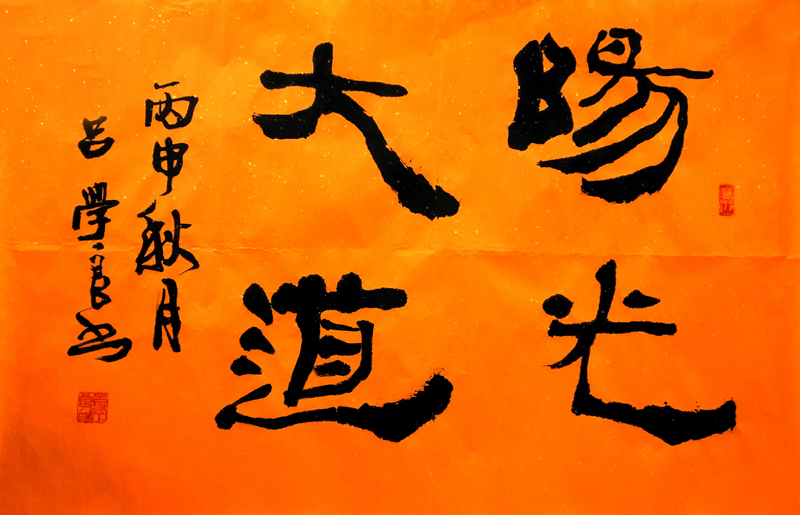 陽光
大道
丙申秋月
呂學良书